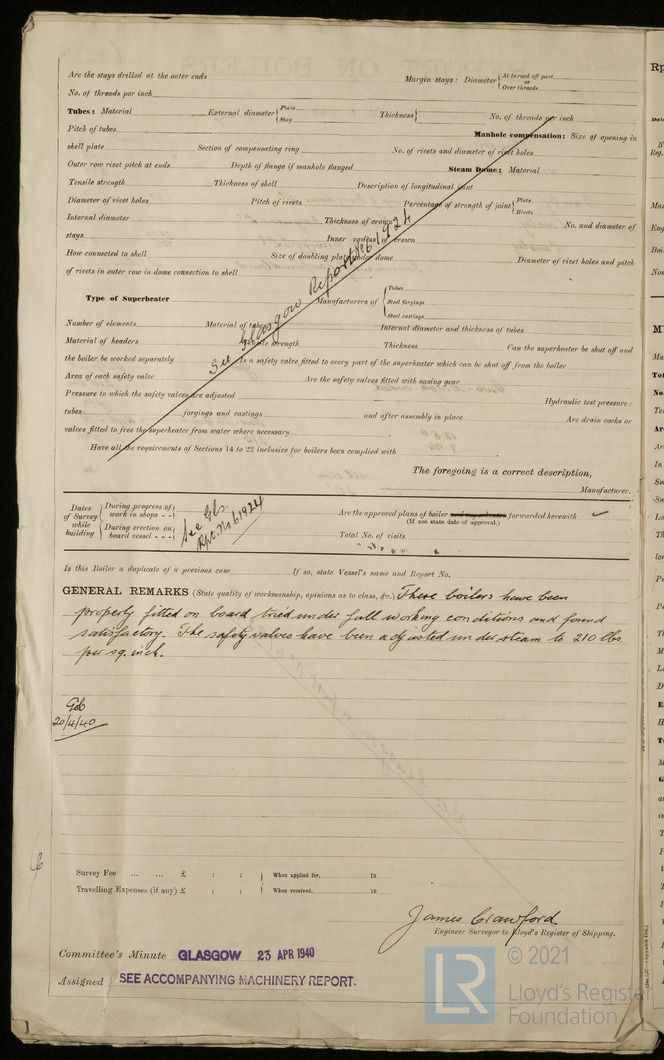 Are the stays drilled at the outer ends Margin stays: Diameter At turned off part or Over threads
No. of threads per inch
Tubes: Material External diameter Plain Stay Thickness No. of threads per inch
Pitch of tubes Manhole compensation: Size of opening in
shell plate Section of compensating ring No. of rivets and diameter of rivet holes
Outer row rivet pitch at ends Depth of flange if manhole flanged Steam Dome: Material
Tensile strength Thickness of shell Description of longitudinal joint
Diameter of rivet holes Pitch of rivets Percentage of strength of joint Plate Rivets
Internal diameter Thickness of crown No. and diameter of
stays Inner radius of crown
How connected to shell Size of doubling plate under dome Diameter of rivet holes and pitch
of rivets in outer row in dome connection to shell
See Glasgow Report No 61924
Type of Superheater Manufacturers of Tubes Steel forgings Steel castings
Number of elements Material of tubes Internal diameter and thickness of tubes
Material of headers Tensile strength Thickness Can the superheater be shut off and
the boiler be worked separately Is a safety valve fitted to every part of the superheater which can be shut off from the boiler
Area of each safety valve Are the safety valves fitted with easing gear
Pressure to which the safety valves are adjusted Hydraulic test pressure:
tubes forgings and castings and after assembly in place Are drain cocks or
valves fitted to free the superheater from water where necessary
Have all the requirements of Sections 14 to 22 inclusive for boilers been complied with
The foregoing is a correct description,
Manufacturer.
Dates of Survey while building During progress of work in shops - - During erection on board vessel - - -
See Gls. Rpt. No 61924
Are the approved plans of boiler and superheater forwarded herewith ✓
(If not state date of approval.)
Total No. of visits
Is this Boiler a duplicate of a previous case If so, state Vessel's name and Report No.
GENERAL REMARKS (State quality of workmanship, opinions as to class, &c.) These boilers have been
properly fitted on board tried under full working conditions and found
satisfactory. The safety valves have been adjusted under steam to 210 lbs
per sq. inch.
20/4/40
Survey Fee ... ... £ : : When applied for, 19
Travelling Expenses (if any) £ : : When received, 19
James Crawford.
Engineer Surveyor to Lloyd's Register of Shipping.
Committee's Minute GLASGOW 23 APR 1940
Assigned SEE ACCOMPANYING MACHINERY REPORT.
LR © 2021
Lloyd's Register
Foundation